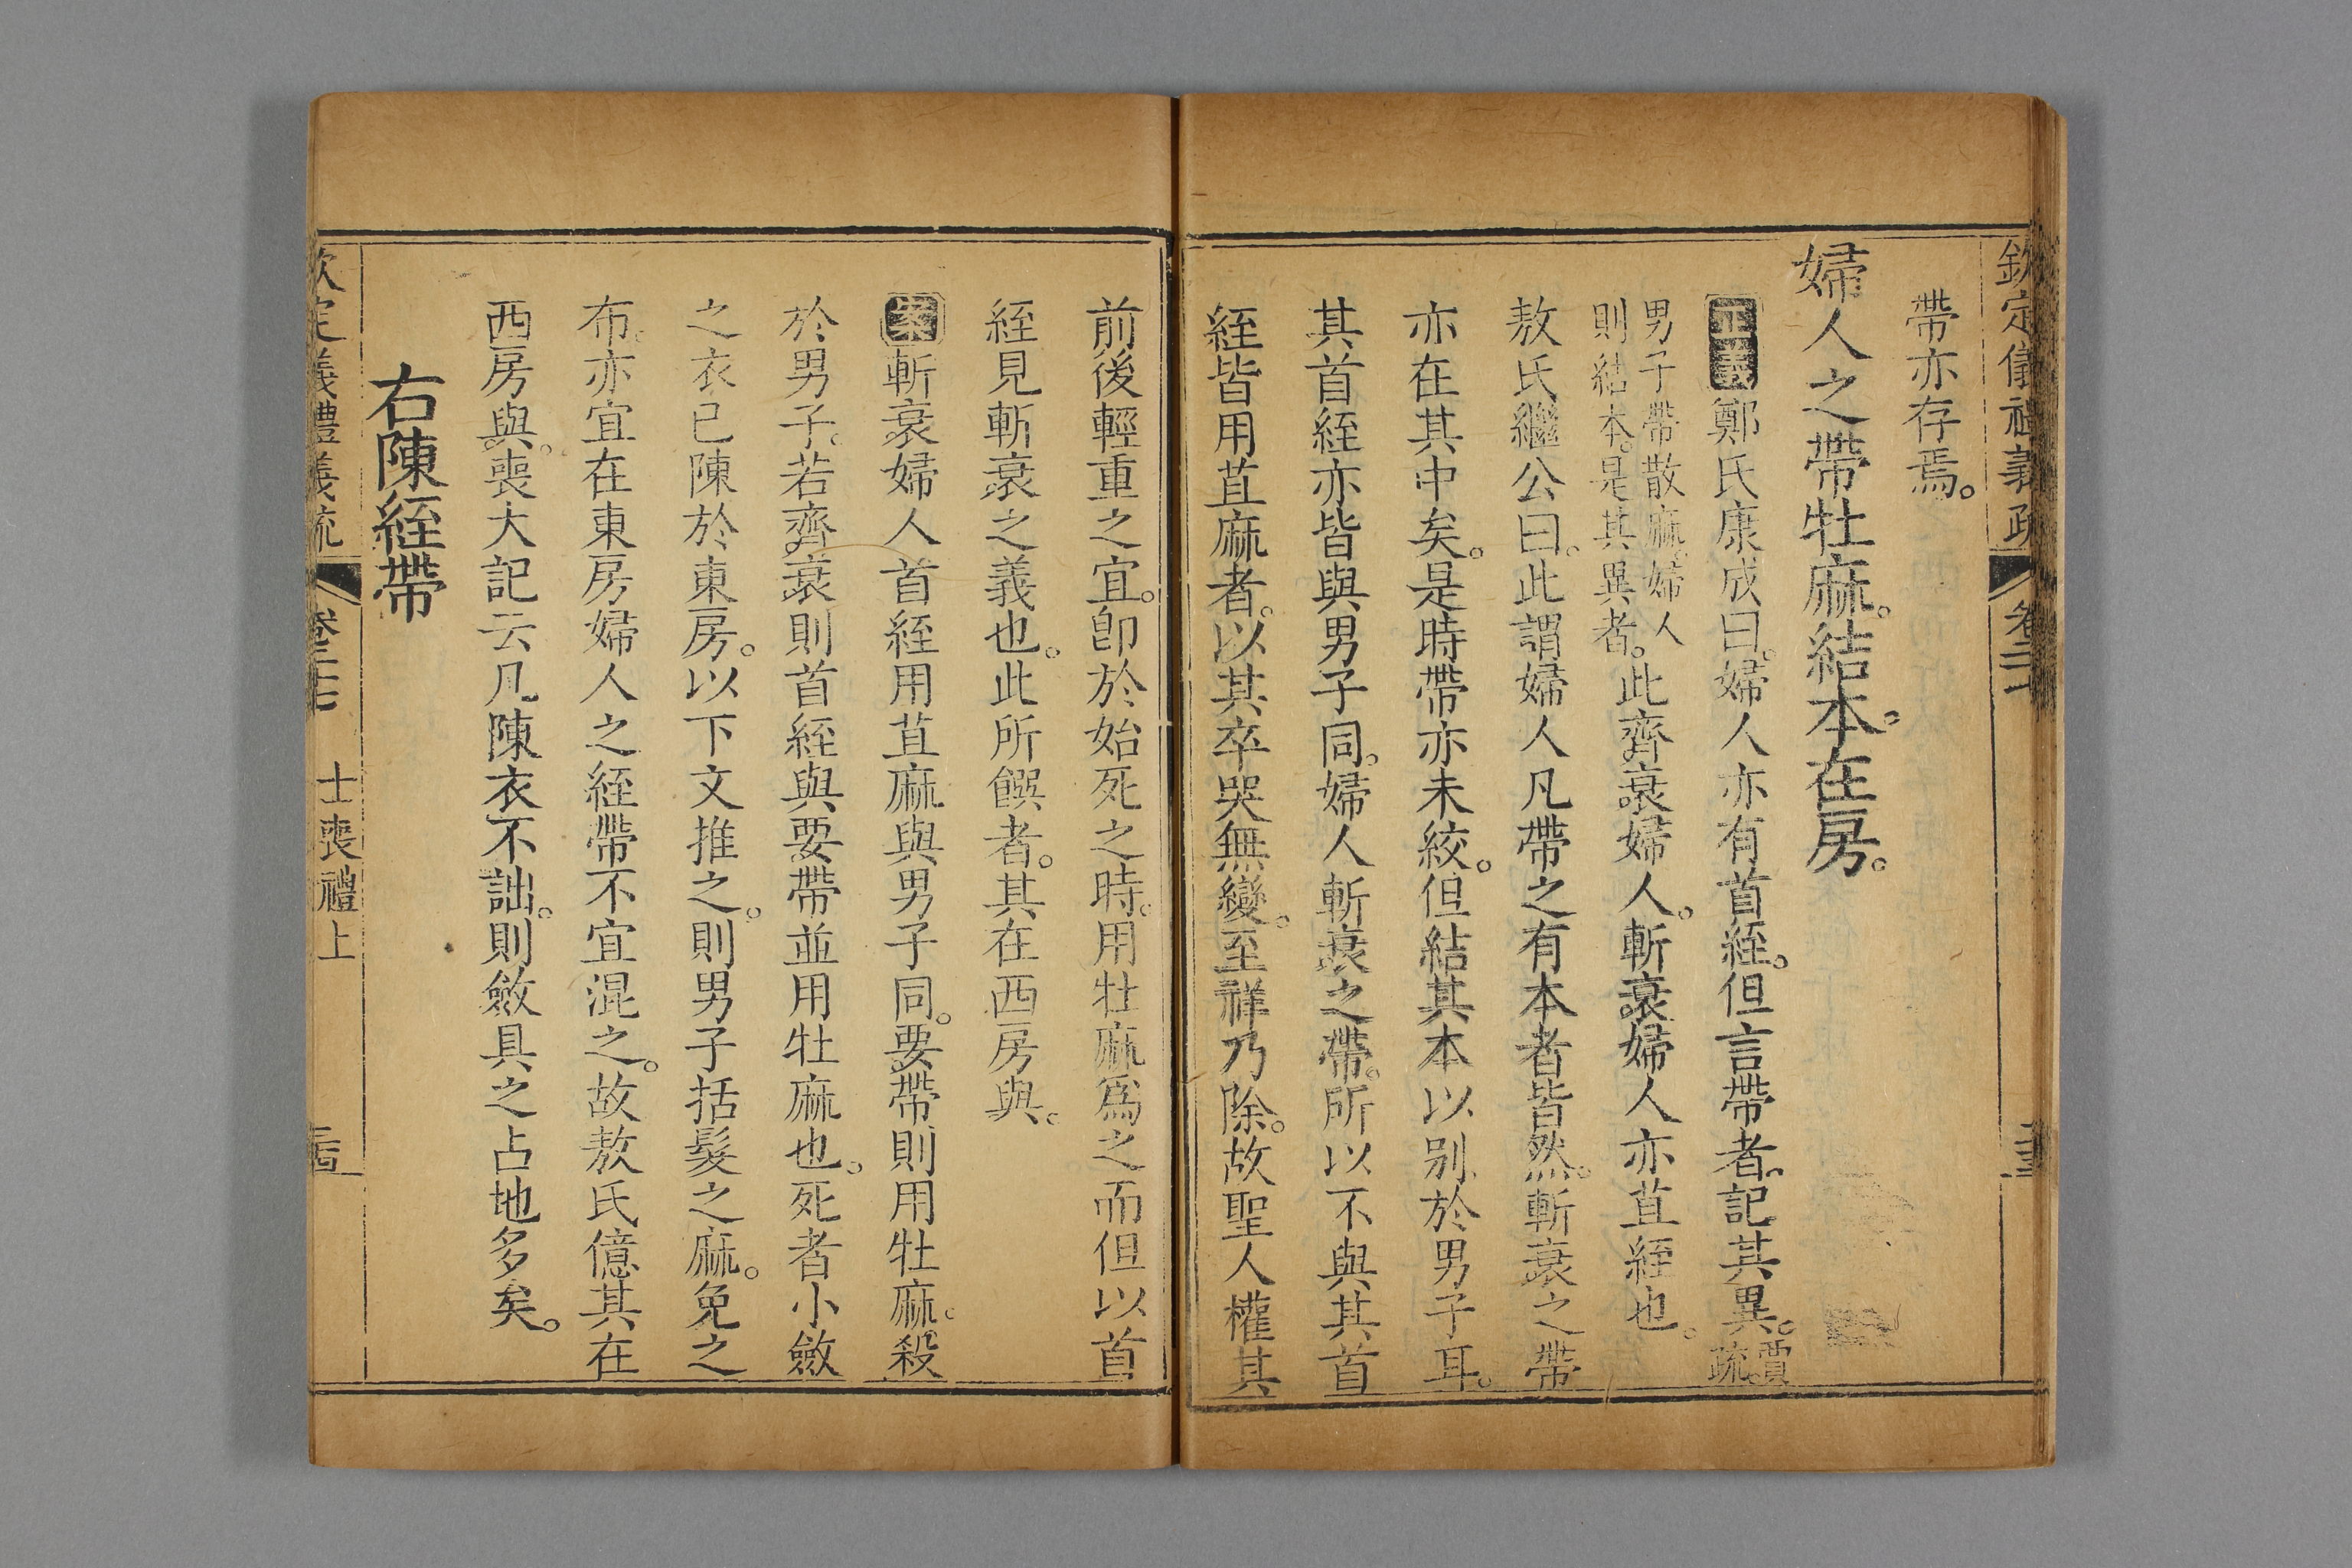 欽定儀禮義疏 卷二十七
帶亦存焉。
婦人之帶牡麻。結本。在房。
正義鄭氏康成曰。婦人亦有首絰。但言帶者。記其異。賈疏。
男子帶散麻。婦人則結本。是其異者。此齊衰婦人。斬衰婦人亦苴絰也。
敖氏繼公曰。此謂婦人凡帶之有本者皆然。斬衰之帶
亦在其中矣。是時帶亦未絞。但結其本以别於男子耳。
其首絰亦皆與男子同。婦人斬衰之帶。所以不與其首
絰皆用苴麻者。以其卒哭無變。至祥乃除。故聖人權其
前後輕重之宜。卽於始死之時。用牡麻爲之而但以首
絰見斬衰之義也。此所饌者。其在西房與。
案斬衰婦人首絰用苴麻與男子同。要帶則用牡麻。殺
於男子。若齊衰則首絰與要帶並用牡麻也。死者小斂
之衣已陳於東房。以下文推之。則男子括髮之麻。免之
布。亦宜在東房婦人之絰帶不宜混之。故敖氏億其在
西房與。喪大記云凡陳衣不詘。則斂具之占地多矣。
右陳絰帶
欽定義禮義疏 卷二十七 士喪禮上